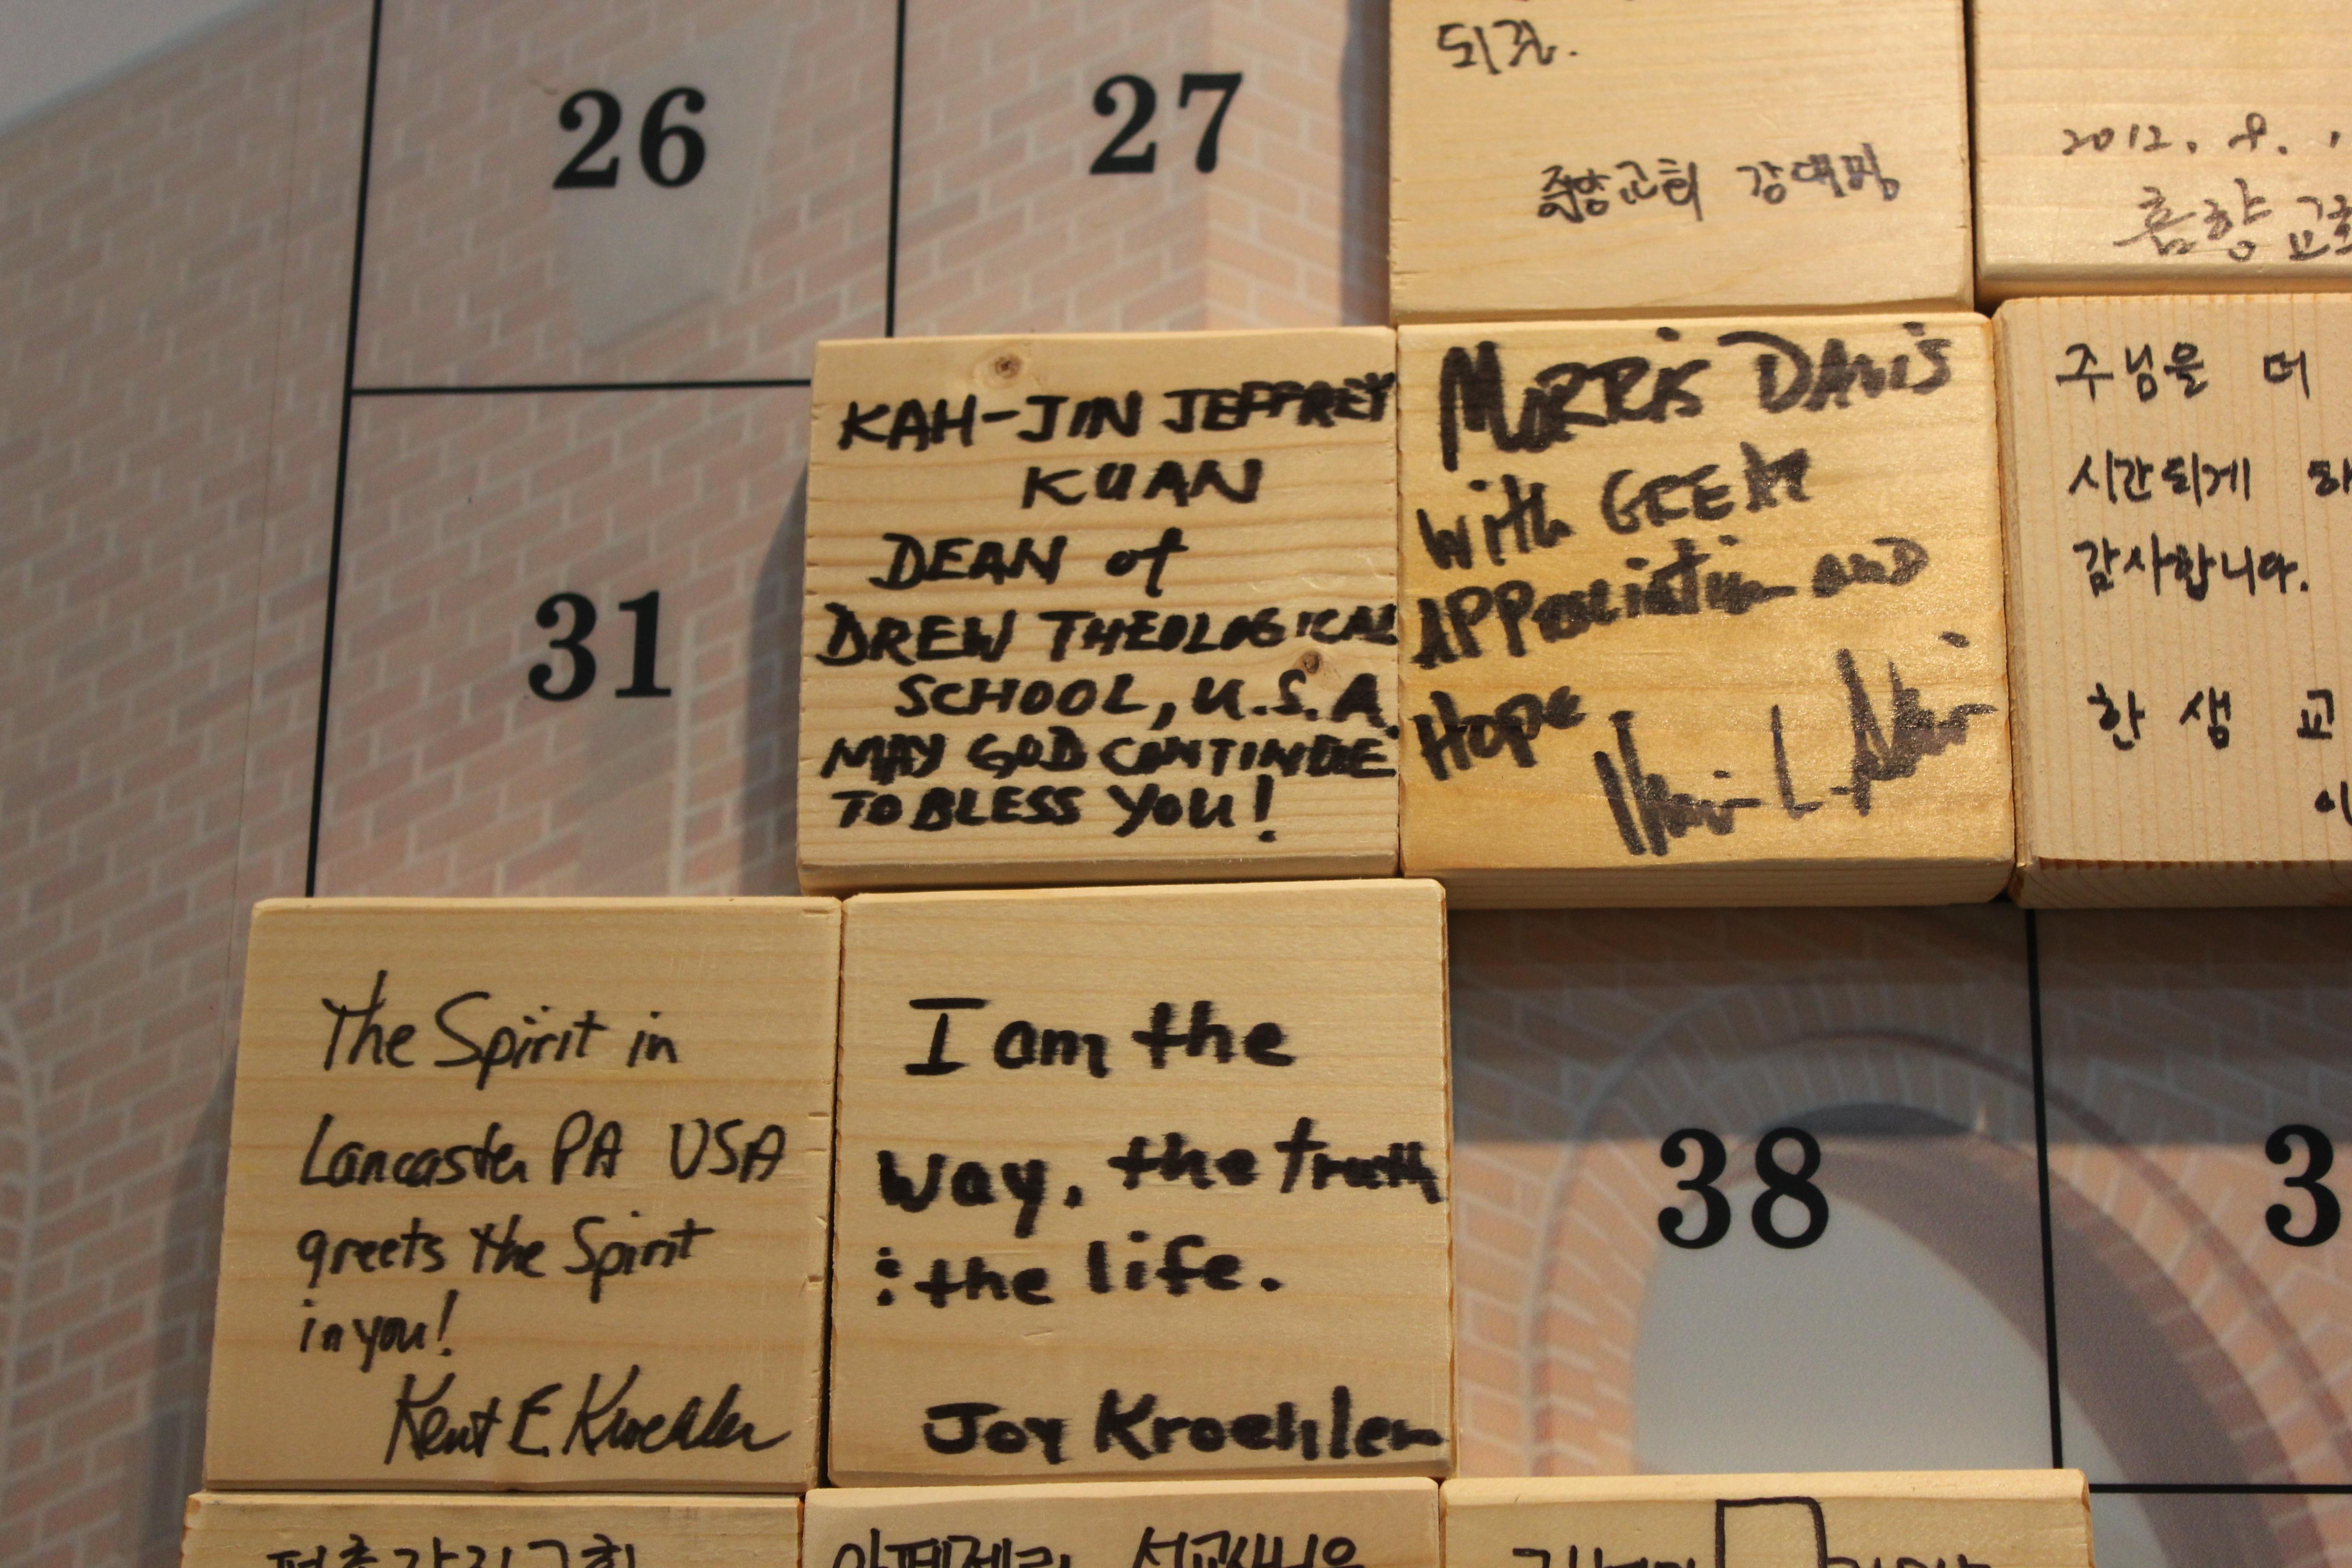 26
27
되길.
중앙교회 강대민
2012. 8.
흠향교회
KAH-JIN JEFFREY
KUAN
DEAN of
DREW THEOLOGICAL
SCHOOL, U.S.A.
MAY GOD CONTINUE
TO BLESS YOU!
MORRIS DAVIS
with GREAT
APPreciation and
Hope
주님을 더
시간되게 하
감사합니다.
한 생 교
31
The Spirit in
Lancaster PA USA
greets the Spirit
in you!
Kent E Kroehler
I am the
way. the truth
: the life.
Joy Kroehler
38
3
아펜젤러 선교사님은